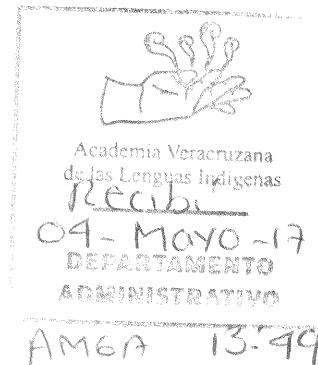 Academia Veracruzana
de las Lenguas Indígenas
Recibí
04-MAYO-17
DEPARTAMENTO
ADMINISTRATIVO
AMGA 13:49